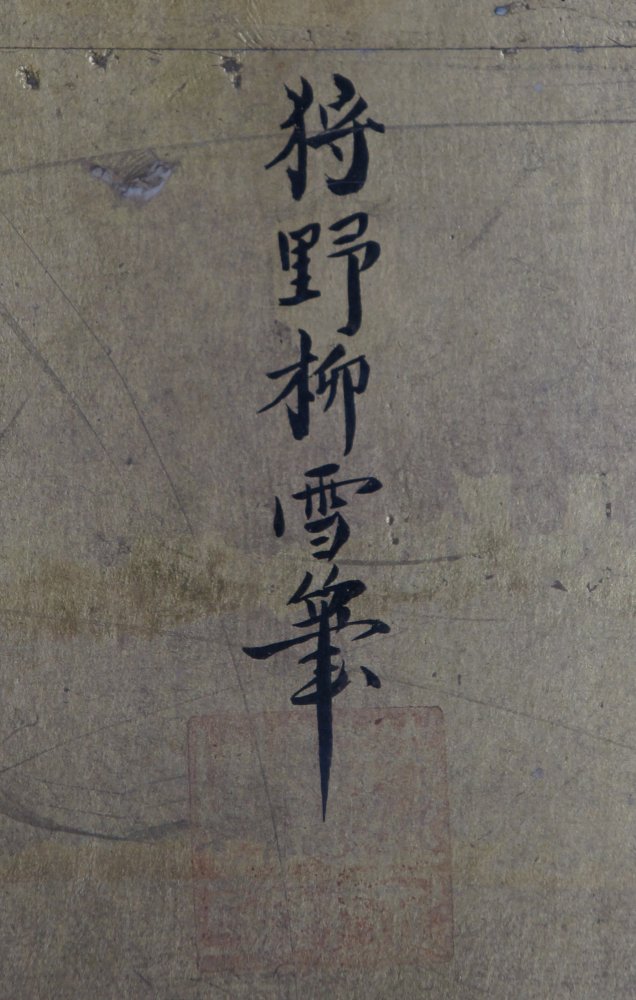 狩野柳雪筆